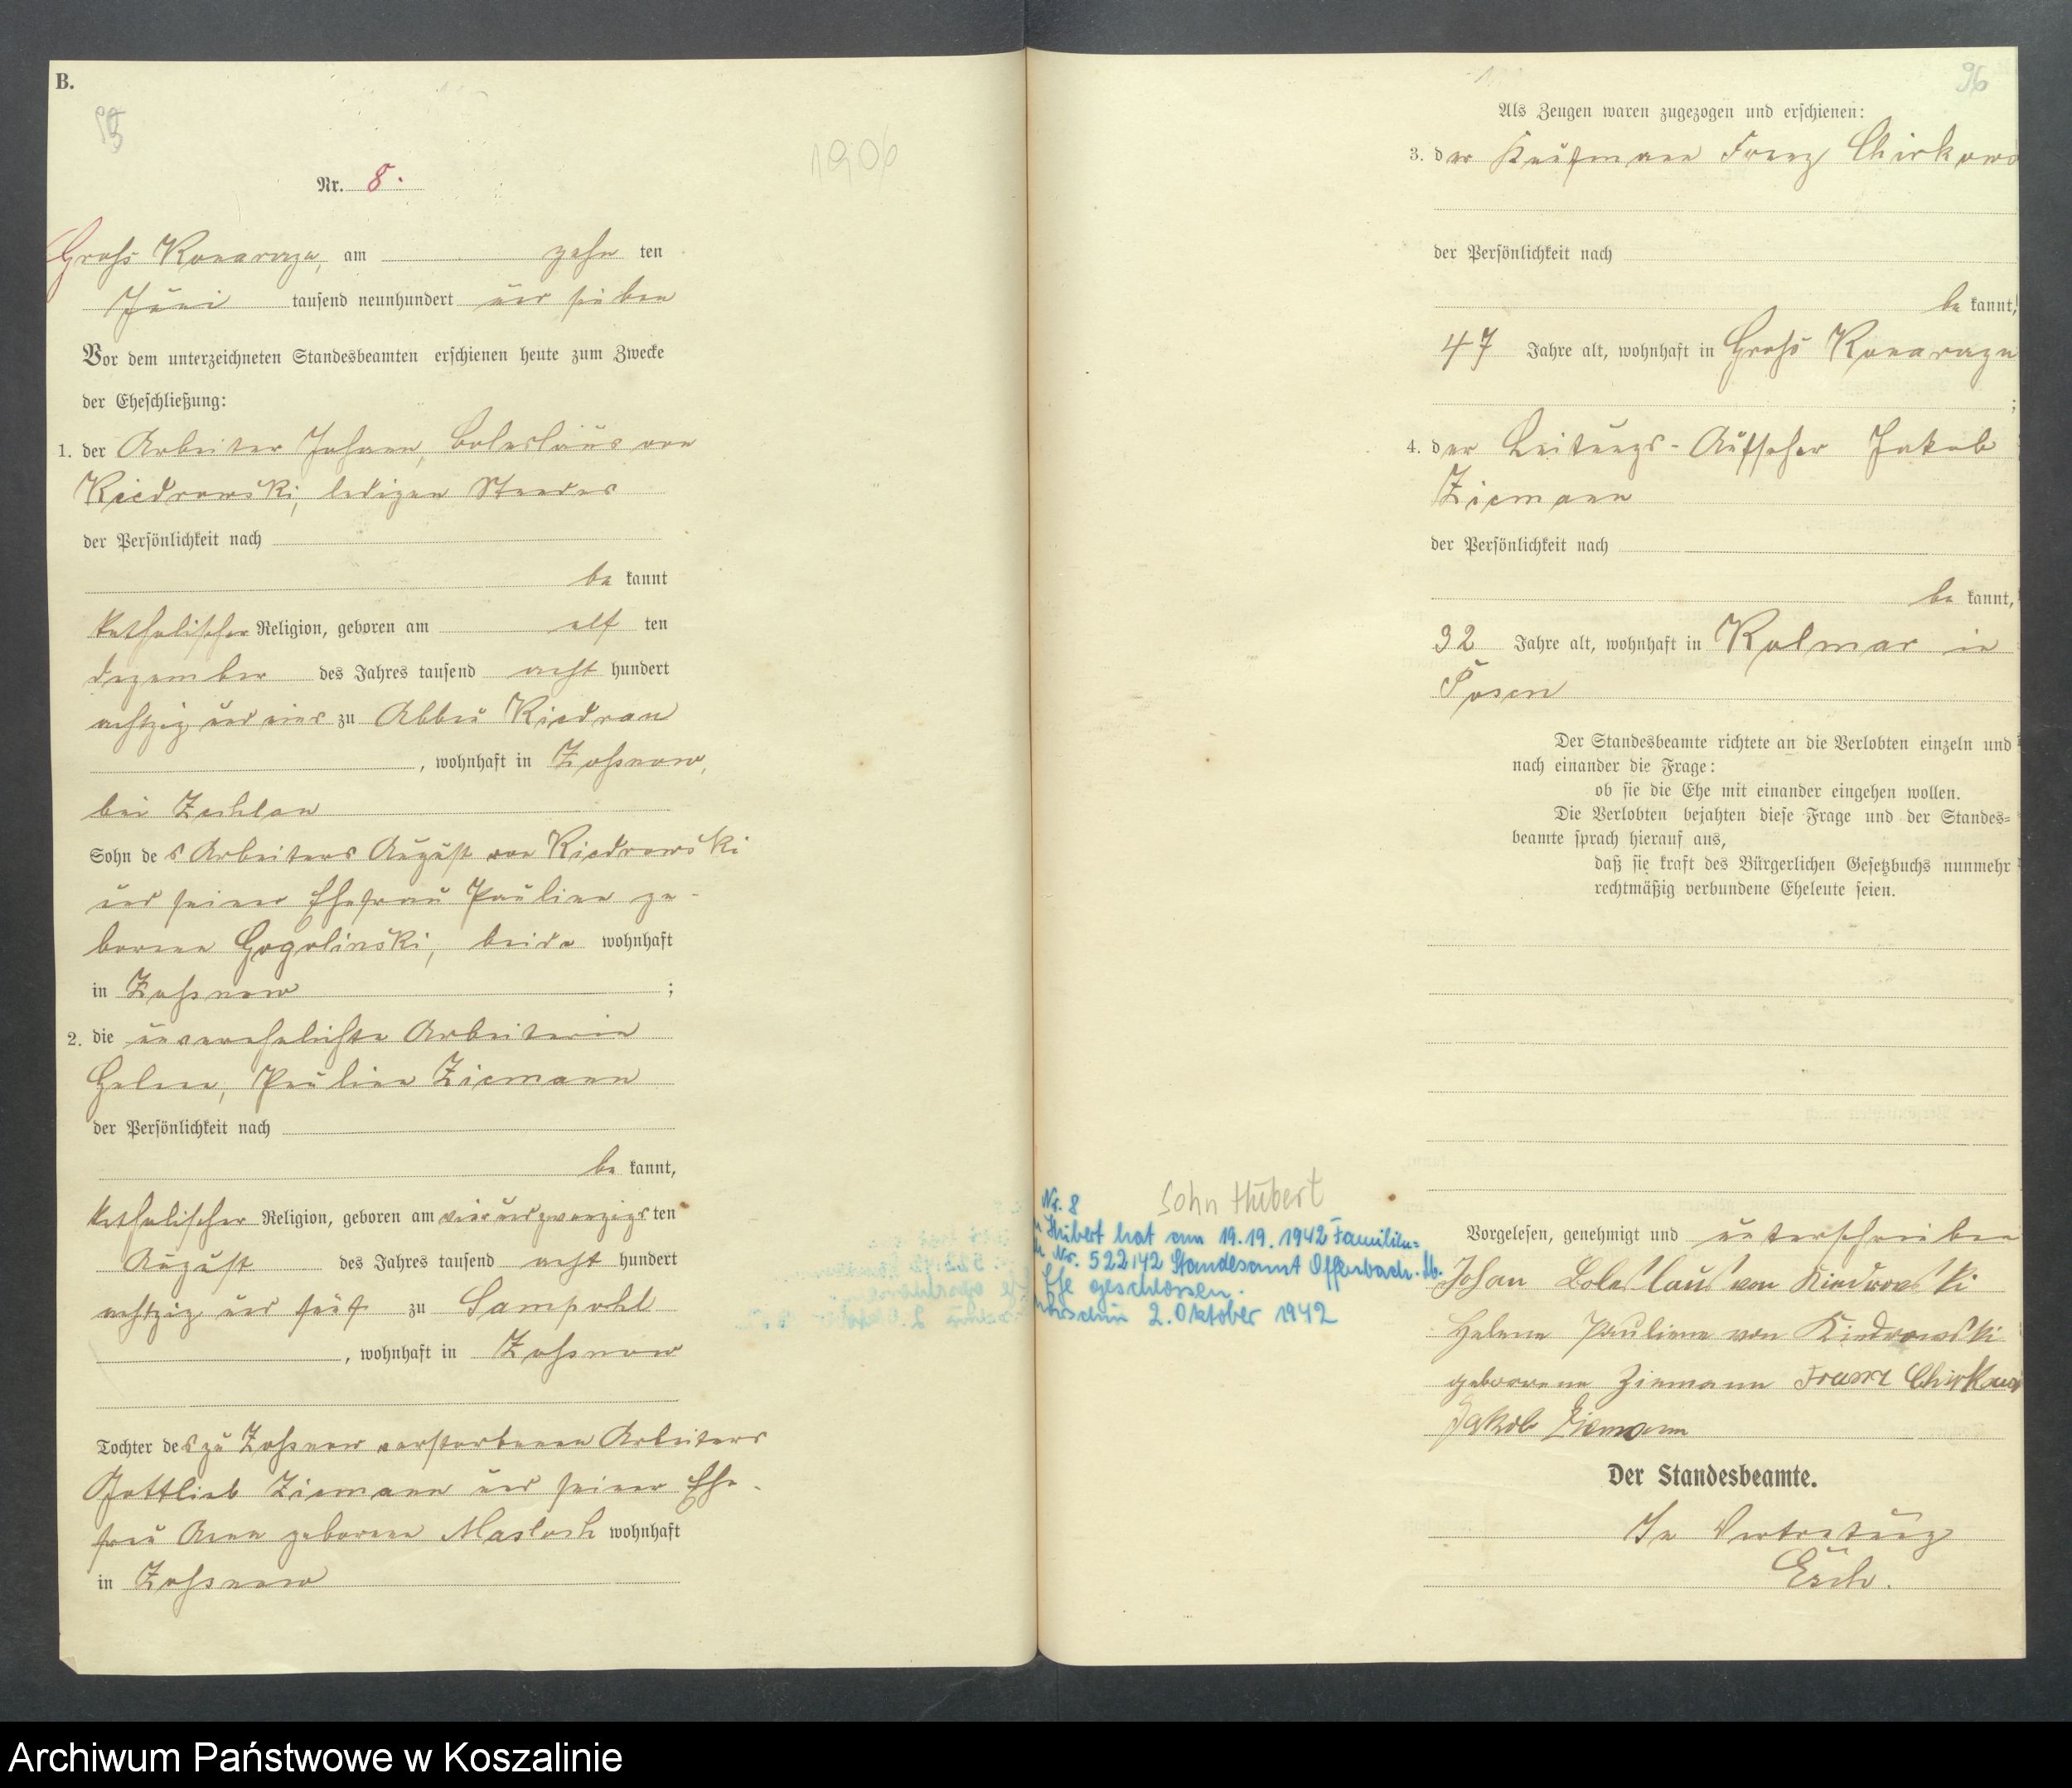 B.
Nr. 8.
1906
Gross Konarczyn, am zehn ten
Juni tausend neunhundert und sieben
Vor dem unterzeichneten Standesbeamten erschienen heute zum Zwecke
der Eheschließung:
1. der Arbeiter Johann, Boleslaus von
Kiedrowski, ledigen Standes
der Persönlichkeit nach
be kannt
katholischer Religion, geboren am elf ten
Dezember des Jahres tausend acht hundert
achtzig und eins zu Abbau Kiedrau
, wohnhaft in Zossnow,
bei Zechlau
Sohn des Arbeiters August von Kiedrowski
und seiner Ehefrau Pauline ge-
borene Gogolinski, beide wohnhaft
in Zossnow ;
2. die unverehelichte Arbeiterin
Helene, Pauline Ziemann
der Persönlichkeit nach
be kannt,
katholischer Religion, geboren am vierundzwanzigsten
August des Jahres tausend acht hundert
achtzig und fünf zu Sampohl
, wohnhaft in Zossnow
Tochter des zu Zossnow verstorbenen Arbeiters
Gottlieb Ziemann und seiner Ehe-
frau Anna geborene Masloch wohnhaft
in Zossnow
96
Als Zeugen waren zugezogen und erschienen:
3. der Kaufmann Franz
der Persönlichkeit nach
be kannt,
47 Jahre alt, wohnhaft in Gross Konarczyn
;
4. der Leitungs-Aufseher Jakob
Ziemann
der Persönlichkeit nach
be kannt,
32 Jahre alt, wohnhaft in Kolmar in
Posen
Der Standesbeamte richtete an die Verlobten einzeln und
nach einander die Frage:
ob sie die Ehe mit einander eingehen wollen.
Die Verlobten bejahten diese Frage und der Standes=
beamte sprach hierauf aus,
daß sie kraft des Bürgerlichen Gesetzbuchs nunmehr
rechtmäßig verbundene Eheleute seien.
Sohn Hubert
Nr. 8
Hubert hat am 19.19.1942 Familien=
Nr. 522/42 Standesamt Offenbach
Ehe geschlossen.
2. Oktober 1942
Vorgelesen, genehmigt und unterschrieben
Johan Boleslaus von Kiedrowski
Helene Pauliene von Kiedrowski
geborene Ziemann Franz
Jakob Ziemann
Der Standesbeamte.
In Vertretung
Esch.
Archiwum Państwowe w Koszalinie